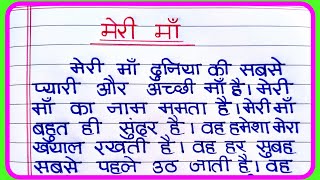 मेरी माँ
मेरी माँ दुनिया की सबसे
प्यारी और अच्छी माँ है। मेरी
माँ का नाम ममता है। मेरी माँ
बहुत ही सुंदर है। वह हमेशा मेरा
खयाल रखती है। वह हर सुबह
सबसे पहले उठ जाती है। वह